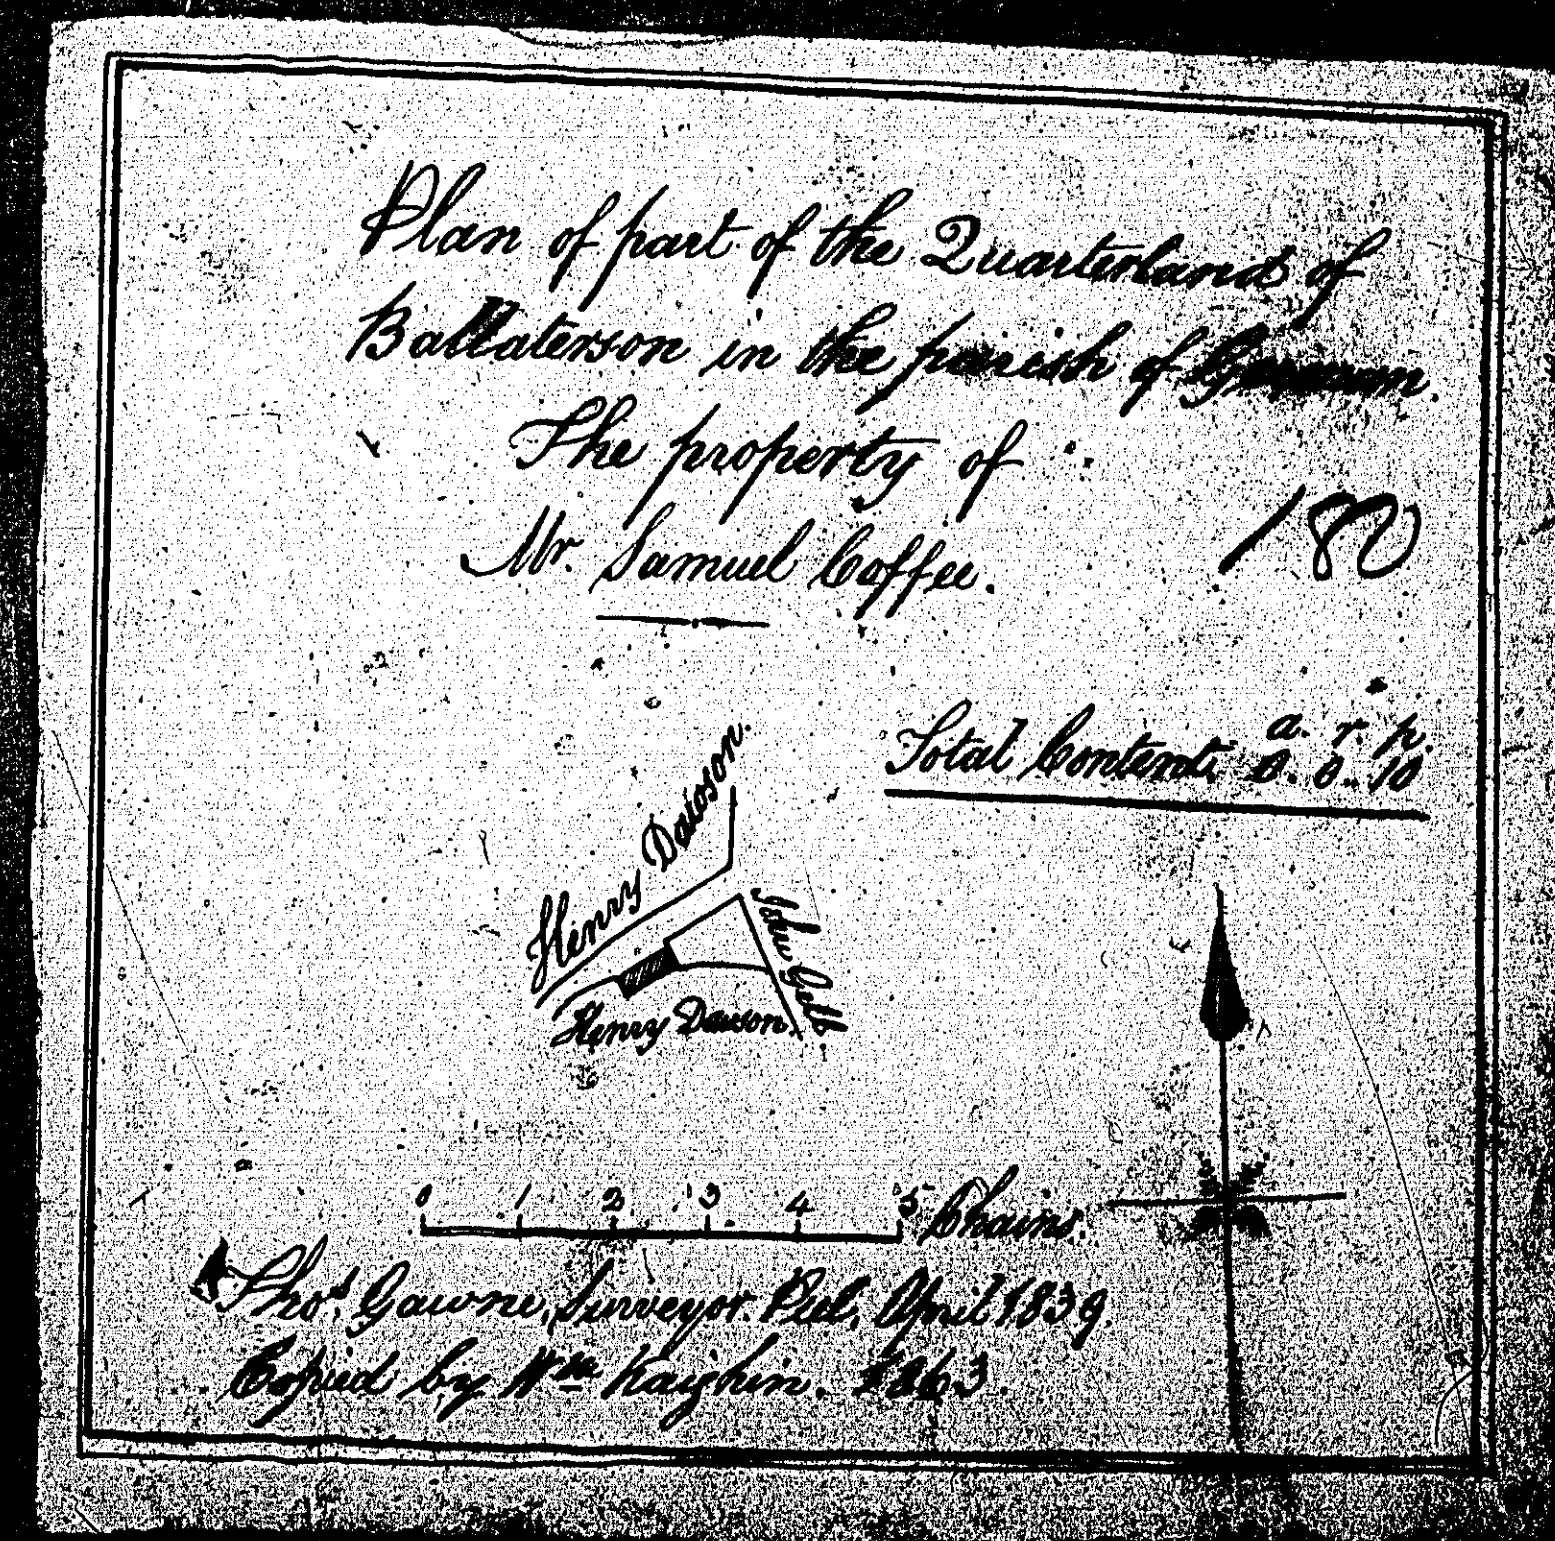 Plan of part of the Quarterland of
Ballaterson in the parish of German.
The property of
Mr. Samuel Coffee.
180
a. r. p.
Total Content, 0. 0. 10
Henry Dawson.
John Gell.
Henry Dawson.
0 1 2 3 4 5 Chains.
Thos. Gawne, Surveyor. Peel, April 1839.
Copied by Wm Kaighin. 1863.